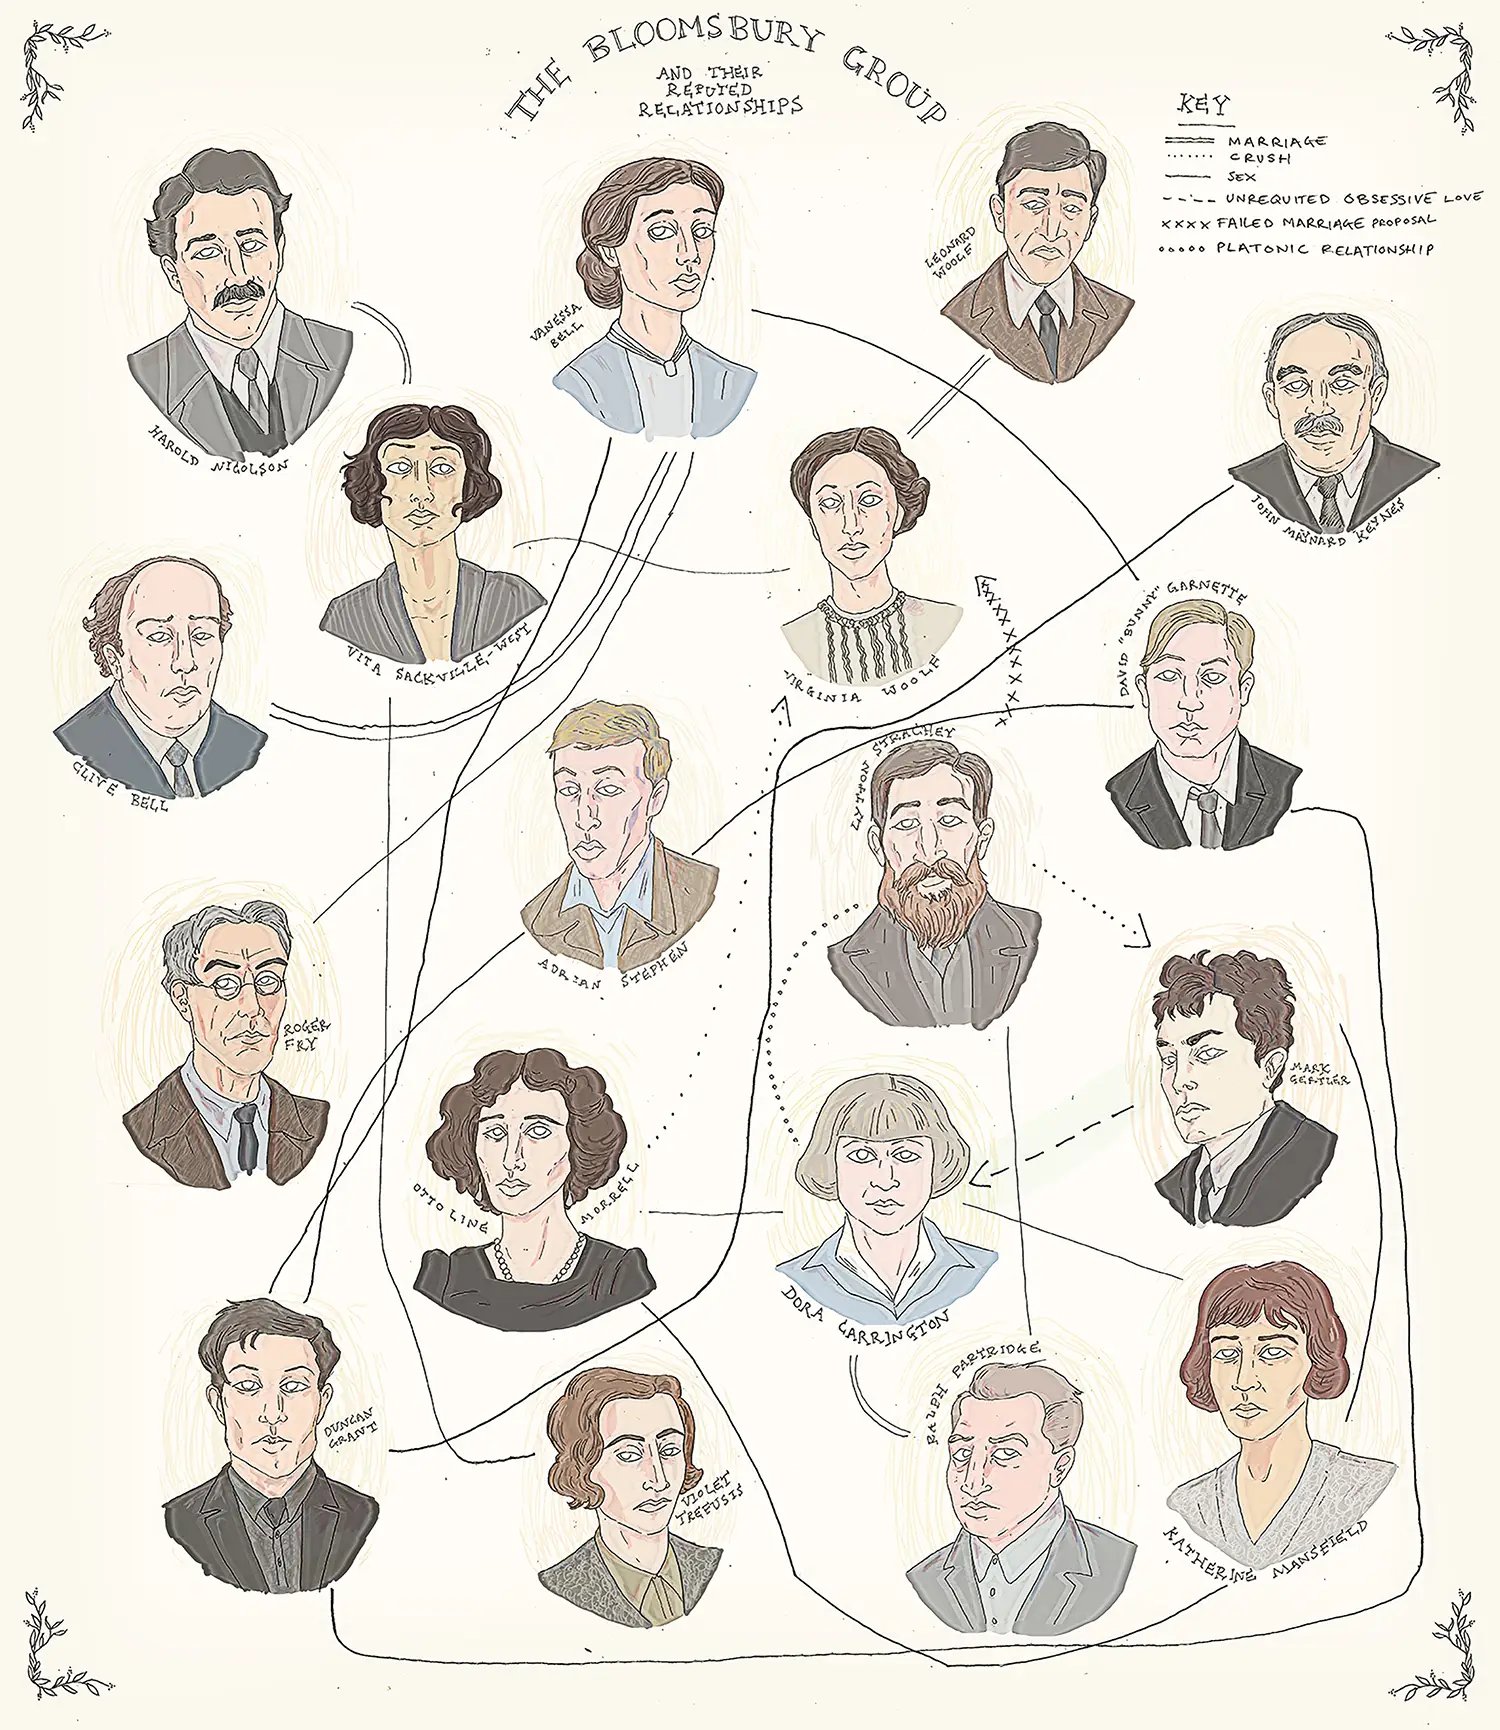 THE BLOOMSBURY GROUP
AND THEIR
REPUTED
RELATIONSHIPS
KEY
MARRIAGE
CRUSH
SEX
UNREQUITED OBSESSIVE LOVE
FAILED MARRIAGE PROPOSAL
PLATONIC RELATIONSHIP
HAROLD NICOLSON
VANESSA
BELL
LEONARD
WOOLF
JOHN MAYNARD KEYNES
VITA SACKVILLE-WEST
VIRGINIA WOOLF
DAVID "BUNNY" GARNETTE
CLIVE BELL
ADRIAN STEPHEN
LYTTON STRACHEY
ROGER
FRY
MARK
GERTLER
OTTOLINE MORRELL
DORA CARRINGTON
DUNCAN
GRANT
VIOLET
TREFUSIS
RALPH PARTRIDGE
KATHERINE MANSFIELD